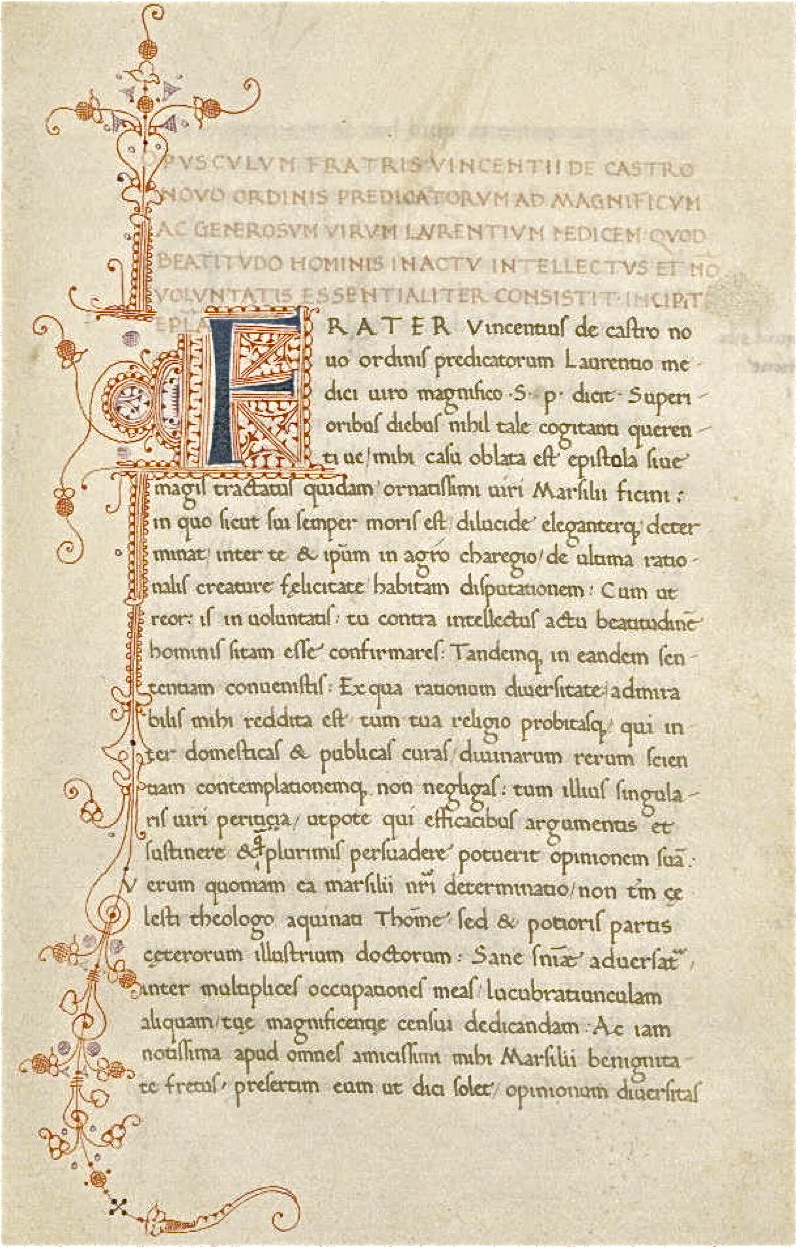 OPVSCVLVM FRATRIS VINCENTII DE CASTRO
NOVO ORDINIS PREDICATORVM AD MAGNIFICVM
AC GENEROSVM VIRVM LAVRENTIVM MEDICEM·QVOD
BEATITVDO HOMINIS IN ACTV INTELLECTVS ET NO
VOLVNTATIS ESSENTIALITER CONSISTIT·INCIPIT
EPLA
FRATER Vincentius de castro no
uo ordinis predicatorum Laurentio me-
dici uiro magnifico ·S· p· dicit· Superi-
oribus diebus nihil tale cogitanti queren-
ti ue/ mihi casu oblata est epistola siue
magis tractatus quidam ornatissimi uiri Marsilii ficini:
in quo sicut sui semper moris est/ dilucide eleganterq; deter-
minat/ inter te & ip̄um in agro charegio/ de ultima ratio-
nalis creature fęlicitate habitam disputationem: Cum ut
reor: is in uoluntatis: tu contra intellectus actu beatitudinē
hominis sitam esse confirmares: Tandemq; in eandem sen-
tentiam conuenistis: Ex qua rationum diuersitate/ admira
bilis mihi reddita est/ tum tua religio probitasq; qui in-
ter domesticas & publicas curas/ diuinarum rerum scien
tiam contemplationemq; non negligas: tum illius singula-
ris uiri peritia/ utpote qui efficacibus argumentis et
sustinere & plurimis persuadere potuerit opinionem suā:
Verum quoniam ea marsilii nr̄i determinatio/ non tm̄ cę
lesti theologo aquinati Thome sed & potioris partis
cęterorum illustrium doctorum: Sane sniāe aduersat͛,
inter multiplices occupationes meas/ lucubratiunculam
aliquam/ tuę magnificentię censui dedicandam: Ac iam
notissima apud omnes amicissimi mihi Marsilii benignita-
te fretus/ presertim cum ut dici solet/ opinionum diuersitas